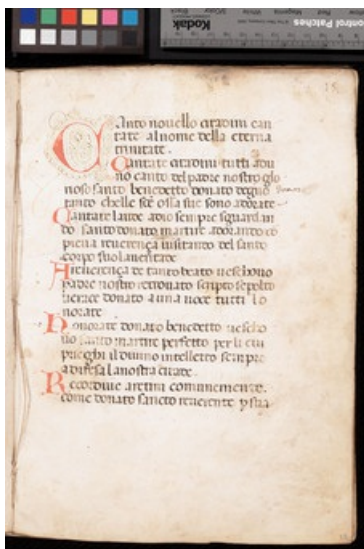 Kodak
Control Patches
18
Canto nouello citadini can
tate al nome della eterna
trinitate.
Cantate citadini tutti adu
no canto del padre nostro glo
rioso santo benedetto donato degno
tanto che le sce ossa sue sono adorate
Cantate laude adio sempre sguardan
do santo donato martire adorando co
piena reuerença uisitando del santo
corpo suo
A reuerença de tanto beato uescouo
padre nostro scripto sepolto
uerace donato a una uoce tutti lo
norate
Honorate donato benedetto uesco
uo santo martire perfetto per li cui
prieghi il diuino intelletto sempre
a difesa la nostra citade.
Recordiue aretini comunemente.
come donato sancto reuerente